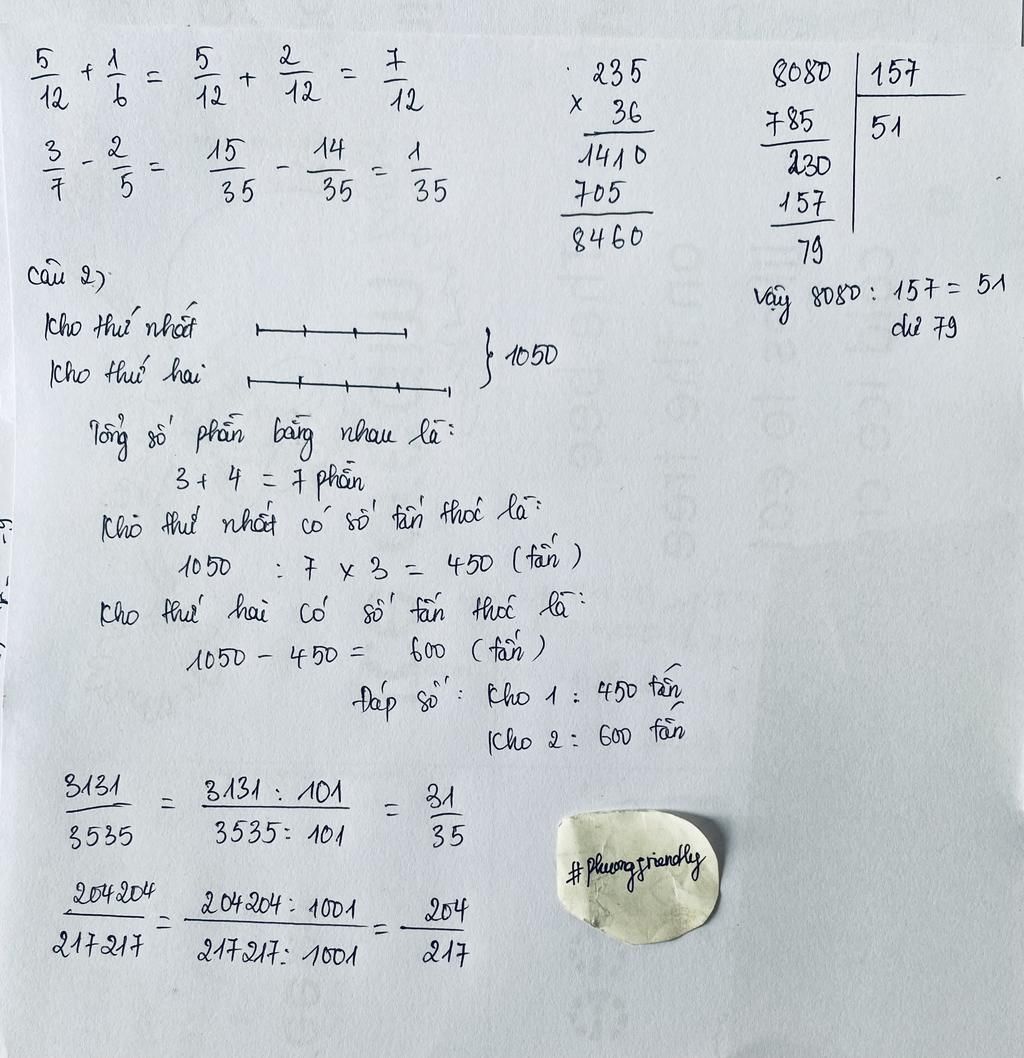 5/12 + 1/6 = 5/12 + 2/12 = 7/12
3/7 - 2/5 = 15/35 - 14/35 = 1/35
235
x 36
1410
705
8460
8080 | 157
785 | 51
230
157
79
Vậy 8080 : 157 = 51
dư 79
Câu 2)
Kho thứ nhất
Kho thứ hai
} 1050
Tổng số phần bằng nhau là:
3 + 4 = 7 phần
Kho thứ nhất có số tấn thóc là:
1050 : 7 x 3 = 450 (tấn)
Kho thứ hai có số tấn thóc là:
1050 - 450 = 600 (tấn)
Đáp số: Kho 1: 450 tấn
Kho 2: 600 tấn
3131/3535 = 3131 : 101/3535 : 101 = 31/35
204204/217217 = 204204 : 1001/217217 : 1001 = 204/217
#phuongfriendly